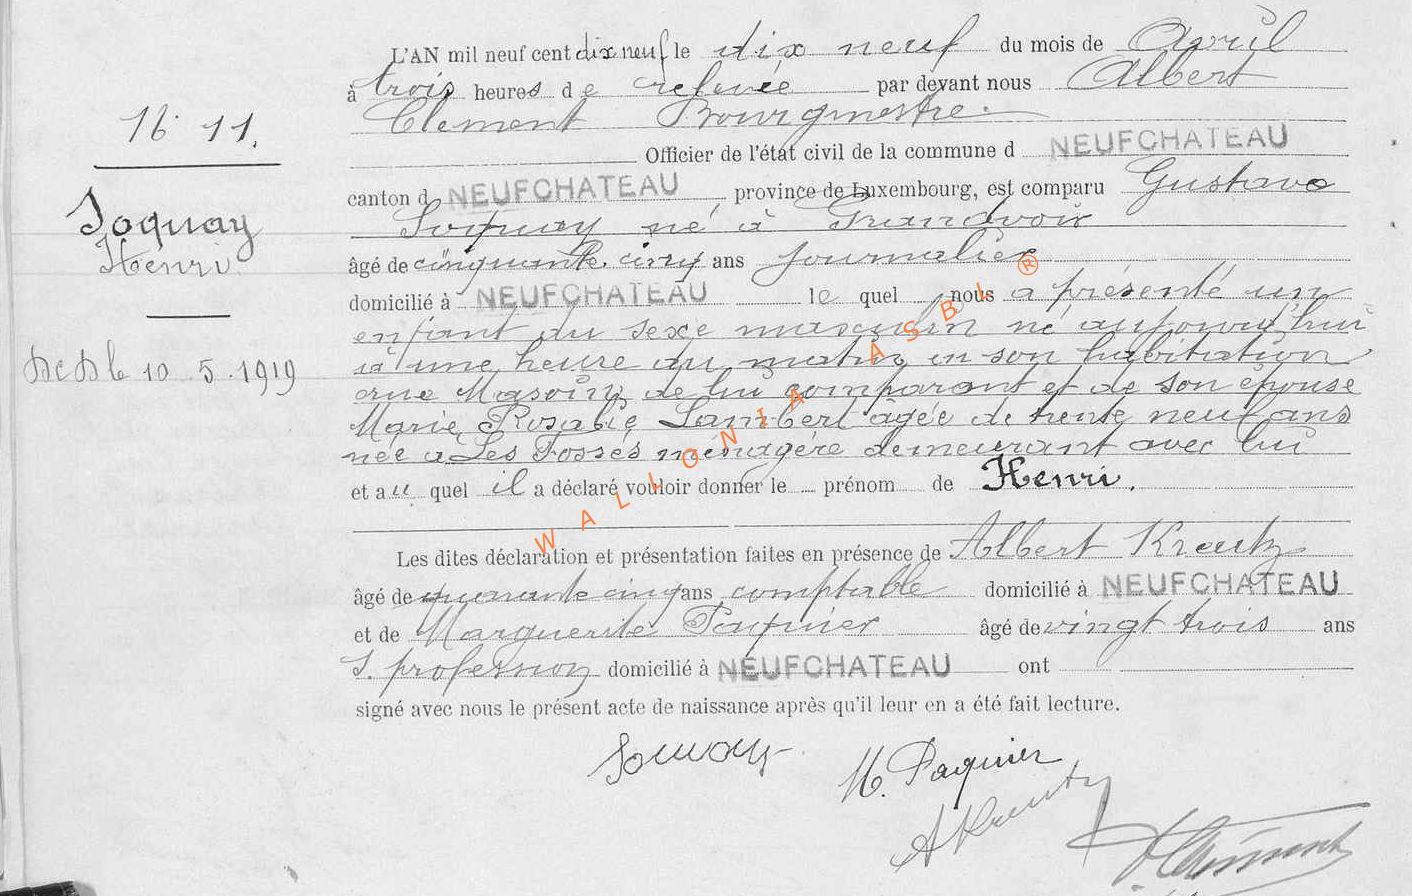 L'AN mil neuf cent dix neuf le dix neuf du mois de Avril
à trois heures de relevée par devant nous Albert
Clement Bourgmestre.
N° 11.
Officier de l'état civil de la commune d NEUFCHATEAU
canton d NEUFCHATEAU, province de Luxembourg, est comparu Gustave
Soquay
Soquay né à Grandvoir
Henri
âgé de cinquante cinq ans journalier
domicilié à NEUFCHATEAU le quel nous a présenté un
enfant du sexe masculin né aujourd'hui
à une heure du matin en son habitation
Dcd le 10.5.1919
rue de lui comparant et de son épouse
Marie Rosalie Lambert âgée de trente neuf ans
née à Les Fossés ménagère demeurant avec lui
et au quel il a déclaré vouloir donner le prénom de Henri.
Les dites déclaration et présentation faites en présence de Albert Kreutz
âgé de quarante cinq ans comptable domicilié à NEUFCHATEAU
et de Marguerite Paquier âgé de vingt trois ans
s. profession domicilié à NEUFCHATEAU ont
signé avec nous le présent acte de naissance après qu'il leur en a été fait lecture.
Soquay
M. Paquier
A Kreutz
A Clément
WALLONIA ASBL ®